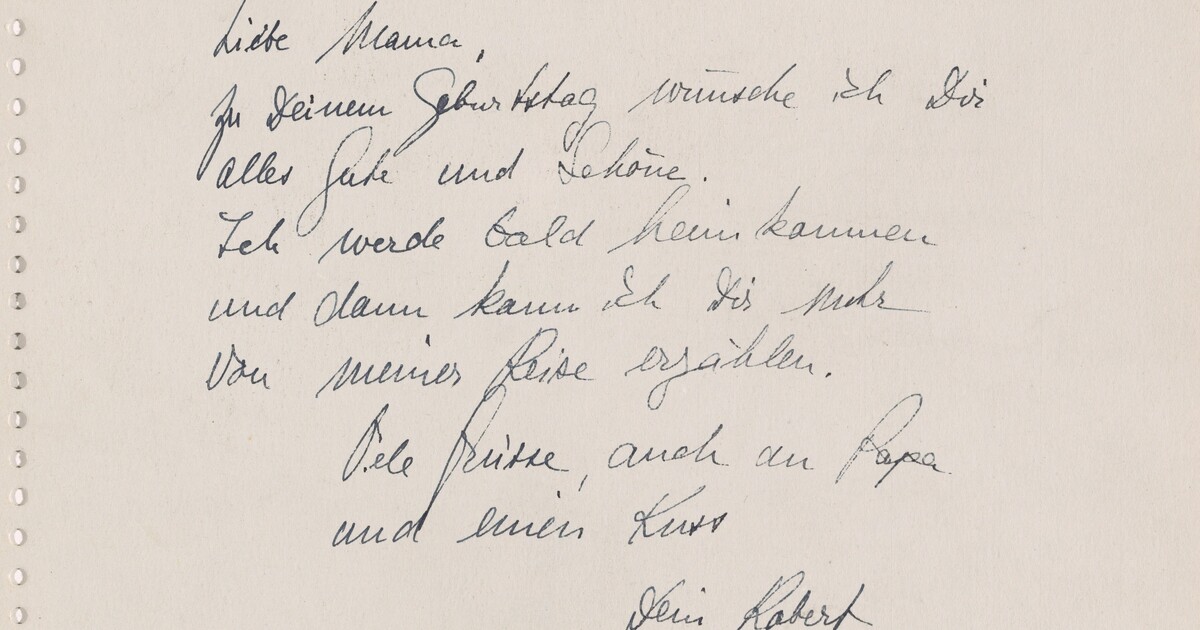 Liebe Mama,
zu Deinem Geburtstag wünsche ich Dir
alles Gute und Schöne.
Ich werde bald heimkommen
und dann kann ich Dir mehr
von meiner Reise erzählen.
Viele Grüsse, auch an Papa
und einen Kuss
Dein Robert